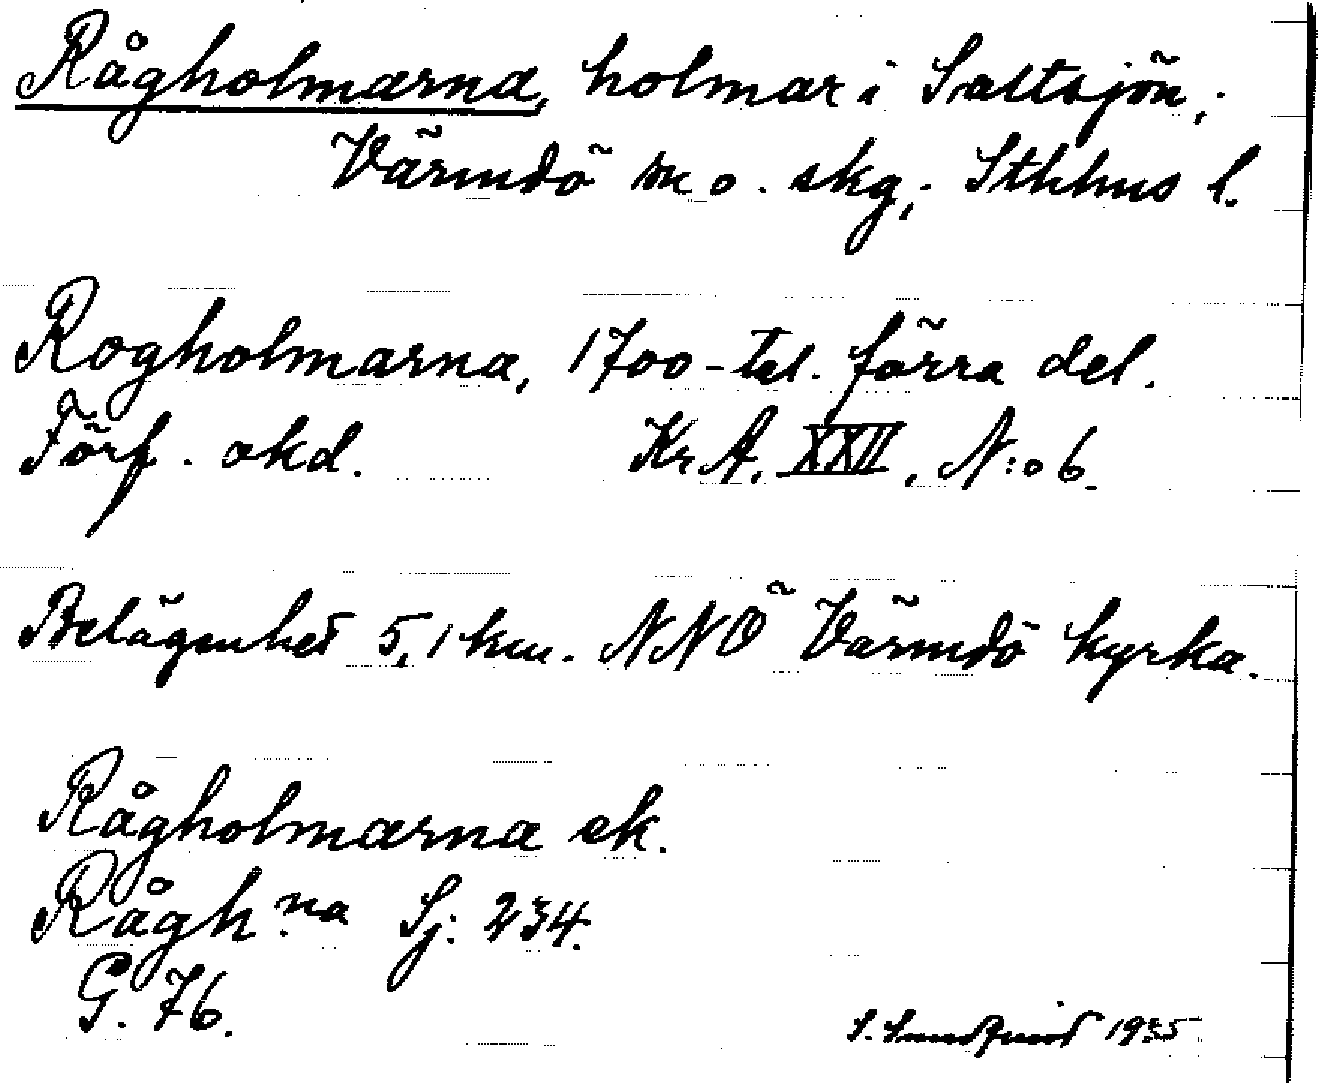 Rågholmarna, holmar i Saltsjön,
Värmdö m. o. skg, Sthlms l.
Rogholmarna, 1700-tal. förra del.
Förf. okd. Kr A. XXII, N:o 6.
Belägenhet 5,1 km. NNÖ Värmdö kyrka.
Rågholmarna ek.
Rågh:na Sj. 234.
G. 76.
1935